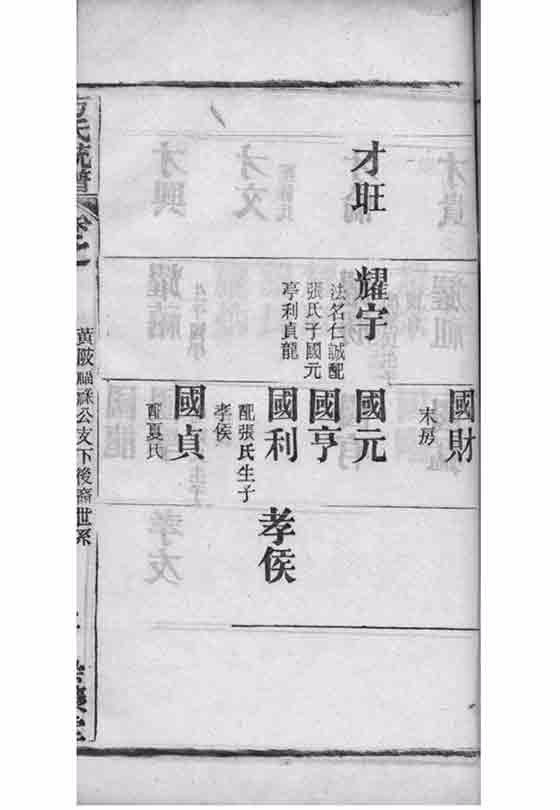 才旺
耀宇
法名仁誠配
張氏子國元
亨利貞龍
國財
末房
國元
國亨
國利
配張氏生子
孝侯
國貞
配夏氏
孝侯
氏統譜
卷之一
黃陂
公支下後裔世系